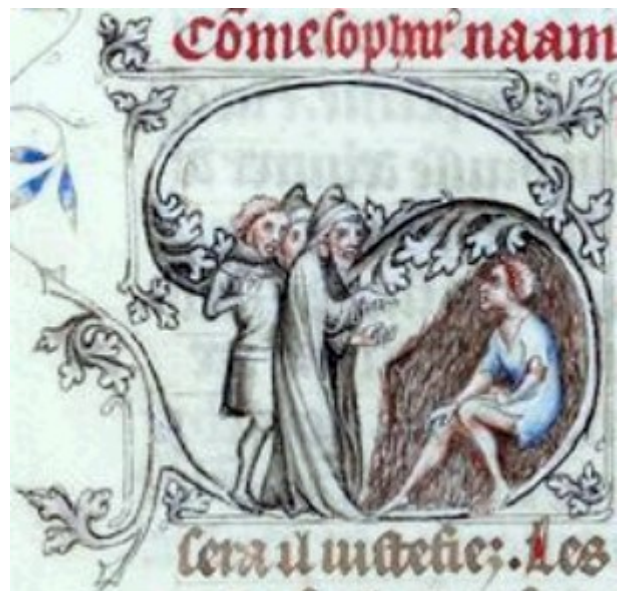 Cõme sophar naam
sera il iustefiez. Les